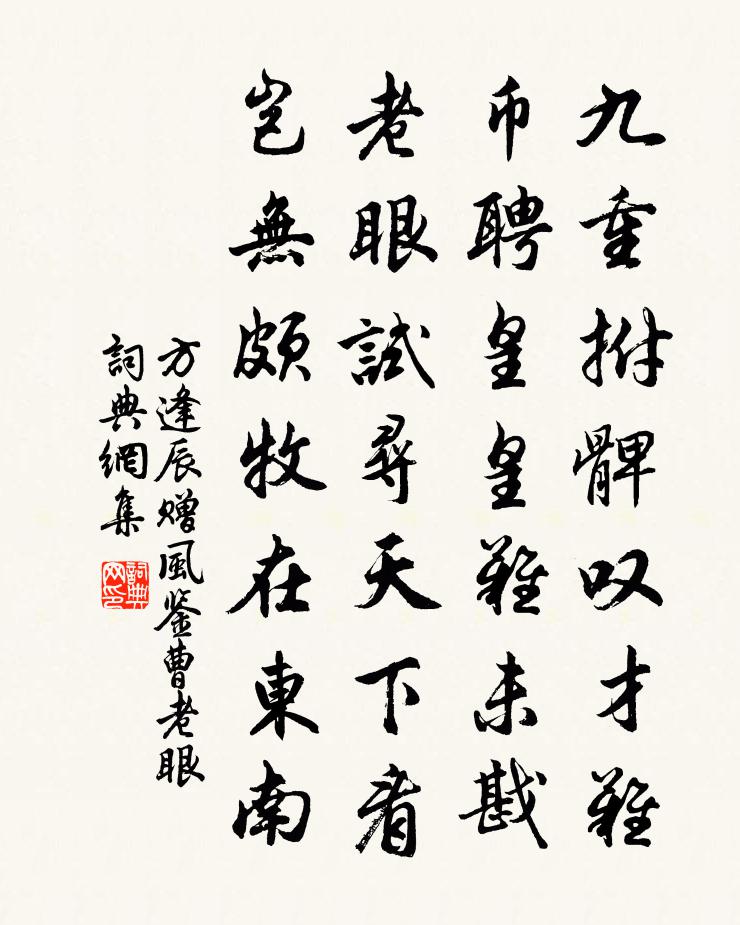 九重拊髀叹才難
币聘皇皇難未戡
老眼試尋天下看
豈無頗牧在東南
方逢辰赠風鉴曹老眼
詞典網集
詞典网印